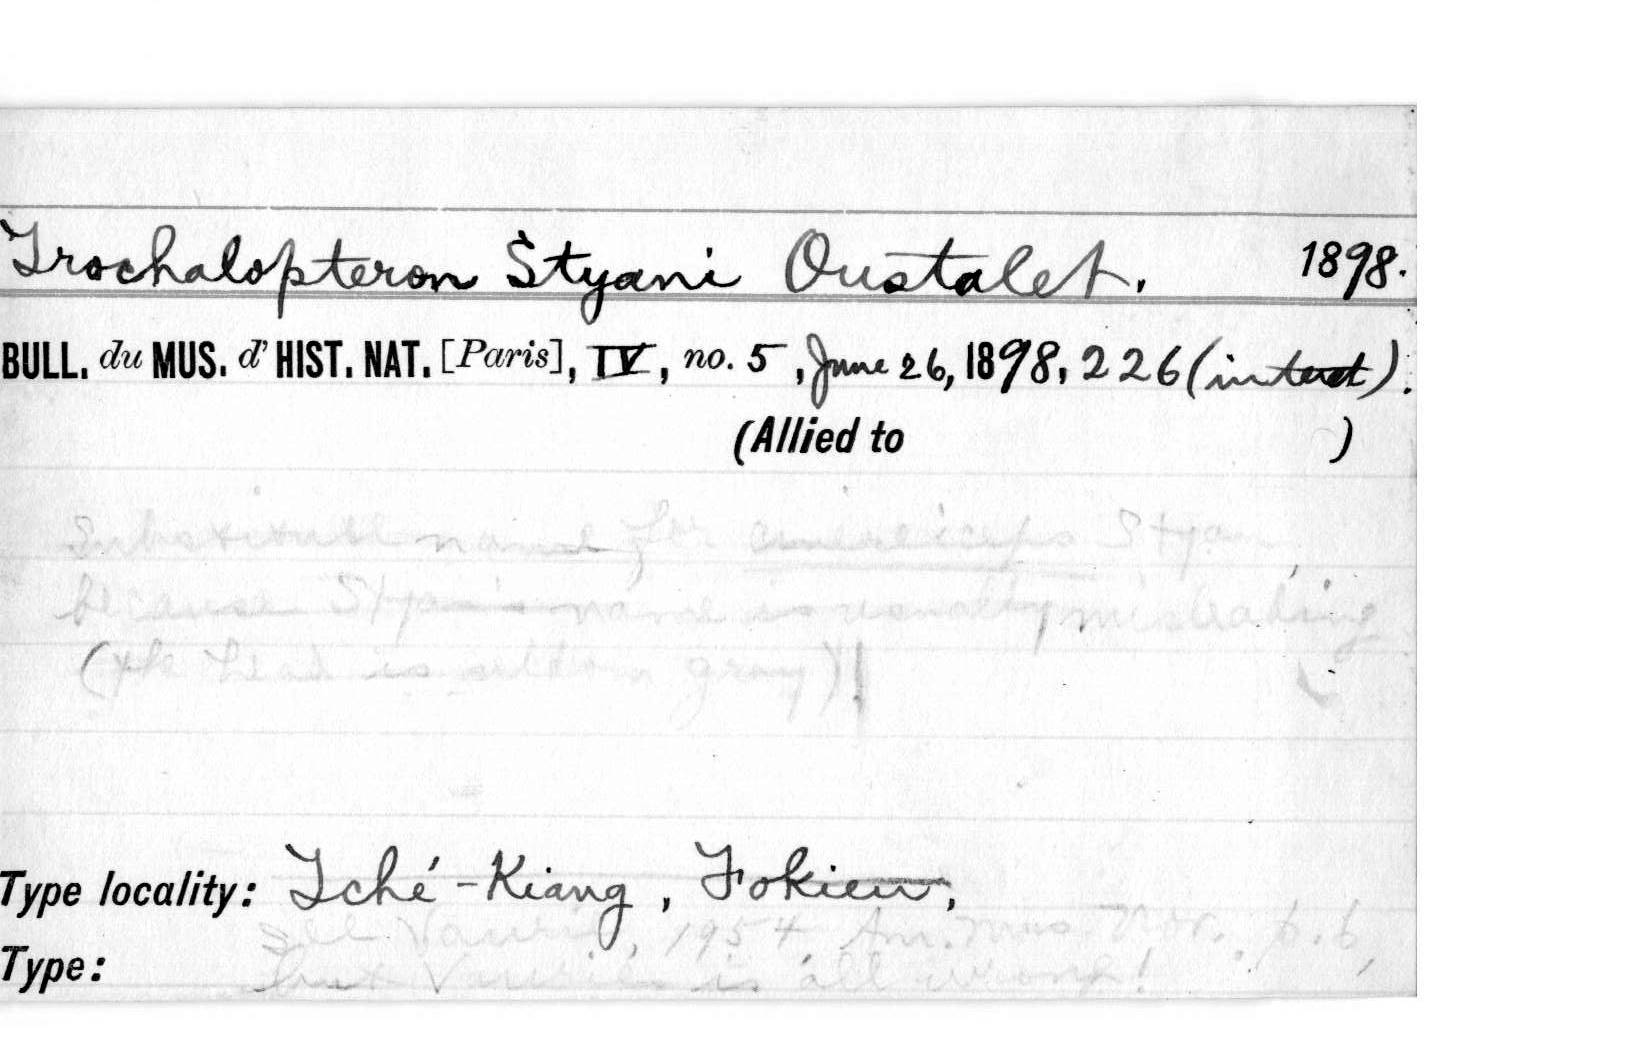 Trochalopteron Styani Oustalet. 1898.
BULL. du MUS. d' HIST. NAT. [Paris], IV, no. 5, June 26, 1898, 226 (in text).
(Allied to )
Substitute name for cinereiceps Styan,
because Styan's name is usually misleading
(the head is seldom gray)!
Type locality: Tché-Kiang, Fokien,
See Vaurie, 1954 Am. Mus. Nov. p. 6,
Type: but Vaurie is all wrong!